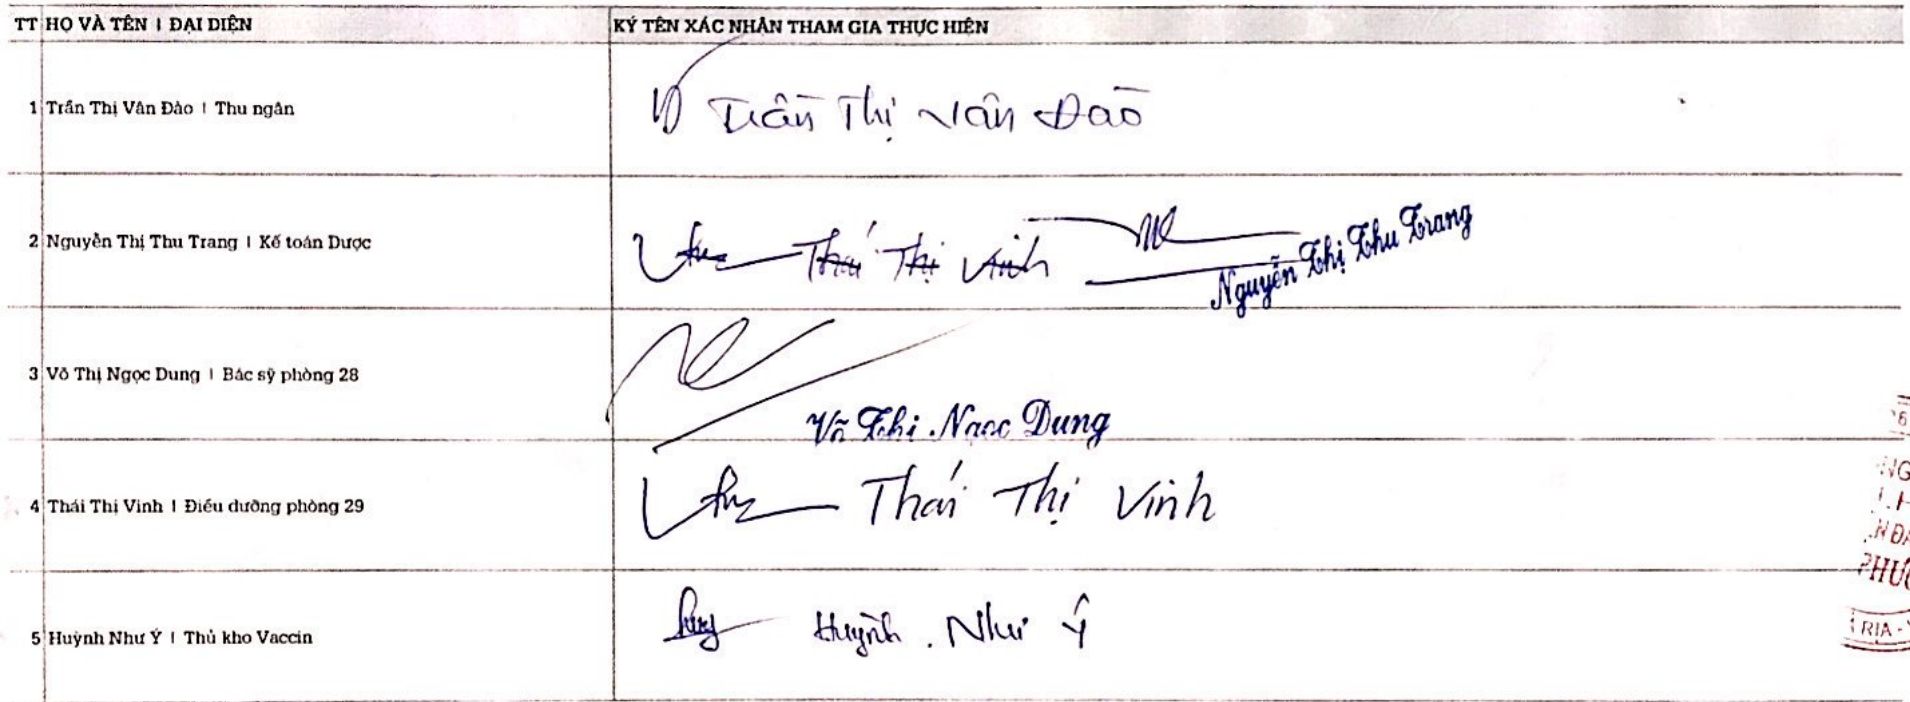 TT HỌ VÀ TÊN | ĐẠI DIỆN KÝ TÊN XÁC NHẬN THAM GIA THỰC HIỆN
1 Trần Thị Vân Đào | Thu ngân Trần Thị Vân Đào
2 Nguyễn Thị Thu Trang | Kế toán Dược Thái Thị Vinh Nguyễn Thị Thu Trang
3 Võ Thị Ngọc Dung | Bác sỹ phòng 28
Võ Thị Ngọc Dung
4 Thái Thị Vinh | Điều dưỡng phòng 29 Thái Thị Vinh
5 Huỳnh Như Ý | Thủ kho Vaccin Huỳnh Như Ý